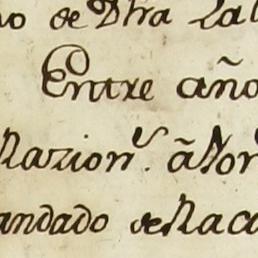 o de Dha Lal
Entre año
Razion.^s âNor
andado de Raca